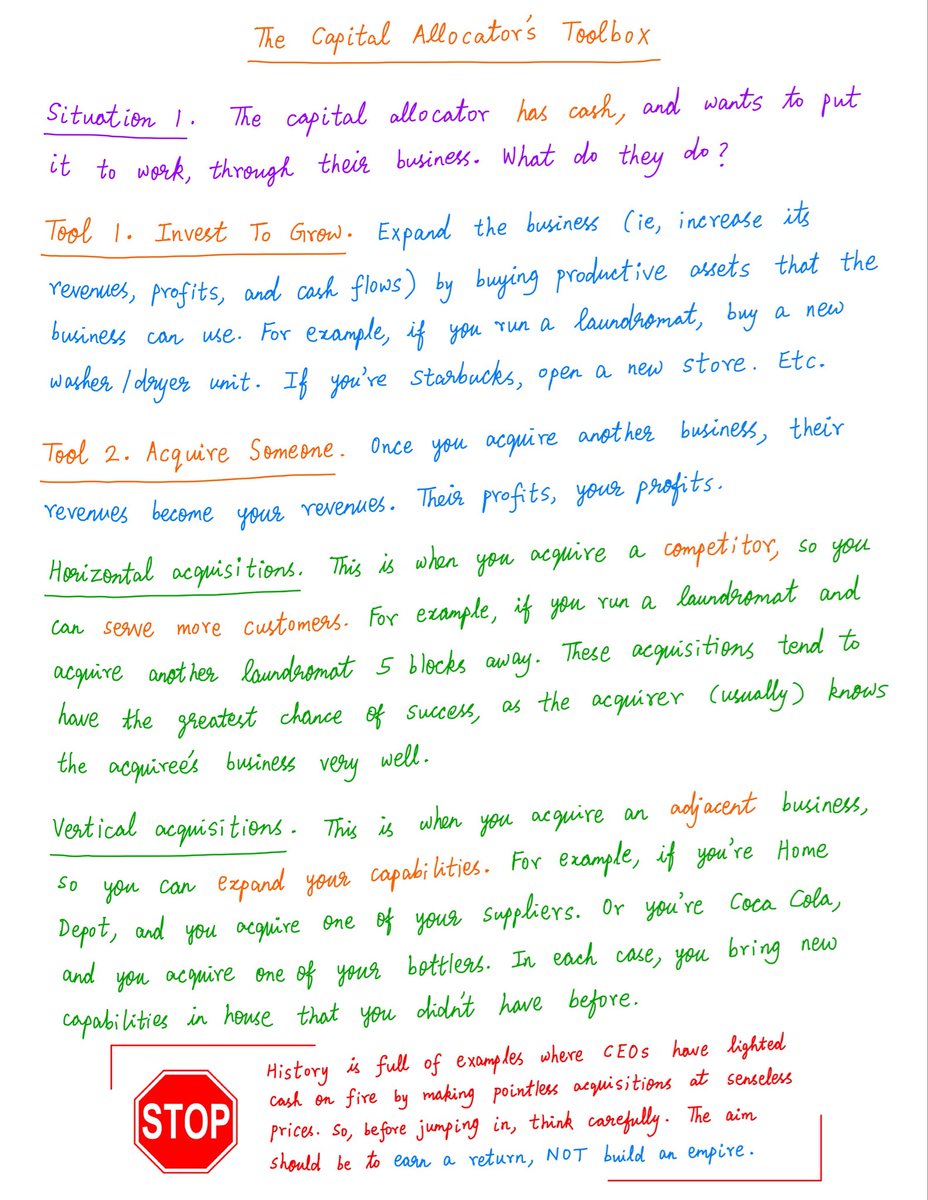 The Capital Allocator's Toolbox
Situation 1. The capital allocator has cash, and wants to put
it to work, through their business. What do they do?
Tool 1. Invest To Grow. Expand the business (ie, increase its
revenues, profits, and cash flows) by buying productive assets that the
business can use. For example, if you run a laundromat, buy a new
washer/dryer unit. If you're Starbucks, open a new store. Etc.
Tool 2. Acquire Someone. Once you acquire another business, their
revenues become your revenues. Their profits, your profits.
Horizontal acquisitions. This is when you acquire a competitor, so you
can serve more customers. For example, if you run a laundromat and
acquire another laundromat 5 blocks away. These acquisitions tend to
have the greatest chance of success, as the acquirer (usually) knows
the acquiree's business very well.
Vertical acquisitions. This is when you acquire an adjacent business,
so you can expand your capabilities. For example, if you're Home
Depot, and you acquire one of your suppliers. Or you're Coca Cola,
and you acquire one of your bottlers. In each case, you bring new
capabilities in house that you didn't have before.
STOP
History is full of examples where CEOs have lighted
cash on fire by making pointless acquisitions at senseless
prices. So, before jumping in, think carefully. The aim
should be to earn a return, NOT build an empire.